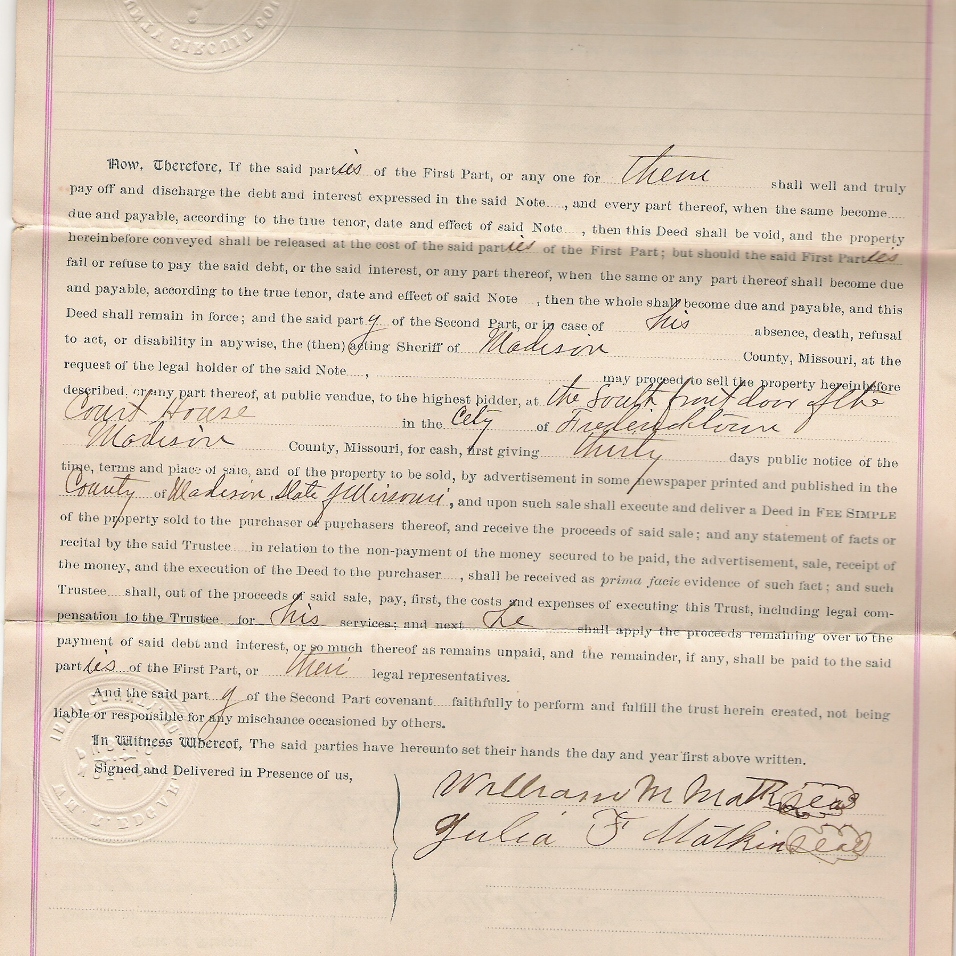 Now, Therefore, If the said parties of the First Part, or any one for them shall well and truly
pay off and discharge the debt and interest expressed in the said Note...., and every part thereof, when the same become.....
due and payable, according to the true tenor, date and effect of said Note...., then this Deed shall be void, and the property
hereinbefore conveyed shall be released at the cost of the said parties of the First Part; but should the said First Parties
fail or refuse to pay the said debt, or the said interest, or any part thereof, when the same or any part thereof shall become due
and payable, according to the true tenor, date and effect of said Note...., then the whole shall become due and payable, and this
Deed shall remain in force; and the said party of the Second Part, or in case of his absence, death, refusal
to act, or disability in anywise, the (then) acting Sheriff of Madison County, Missouri, at the
request of the legal holder of the said Note...., may proceed to sell the property hereinbefore
described, or any part thereof, at public vendue, to the highest bidder, at the South front door of the
Court House in the City of Fredericktown
Madison County, Missouri, for cash, first giving thirty days public notice of the
time, terms and place of sale, and of the property to be sold, by advertisement in some newspaper printed and published in the
County of Madison, State of Missouri, and upon such sale shall execute and deliver a Deed in FEE SIMPLE
of the property sold to the purchaser or purchasers thereof, and receive the proceeds of said sale; and any statement of facts or
recital by the said Trustee.... in relation to the non-payment of the money secured to be paid, the advertisement, sale, receipt of
the money, and the execution of the Deed to the purchaser...., shall be received as prima facie evidence of such fact; and such
Trustee.... shall, out of the proceeds of said sale, pay, first, the costs and expenses of executing this Trust, including legal com-
pensation to the Trustee for his services; and next he shall apply the proceeds remaining over to the
payment of said debt and interest, or so much thereof as remains unpaid, and the remainder, if any, shall be paid to the said
parties of the First Part, or their legal representatives.
And the said party of the Second Part covenant faithfully to perform and fulfill the trust herein created, not being
liable or responsible for any mischance occasioned by others.
In Witness Whereof, The said parties have hereunto set their hands the day and year first above written.
Signed and Delivered in Presence of us,
William M Matkin seal
Julia F Matkin seal